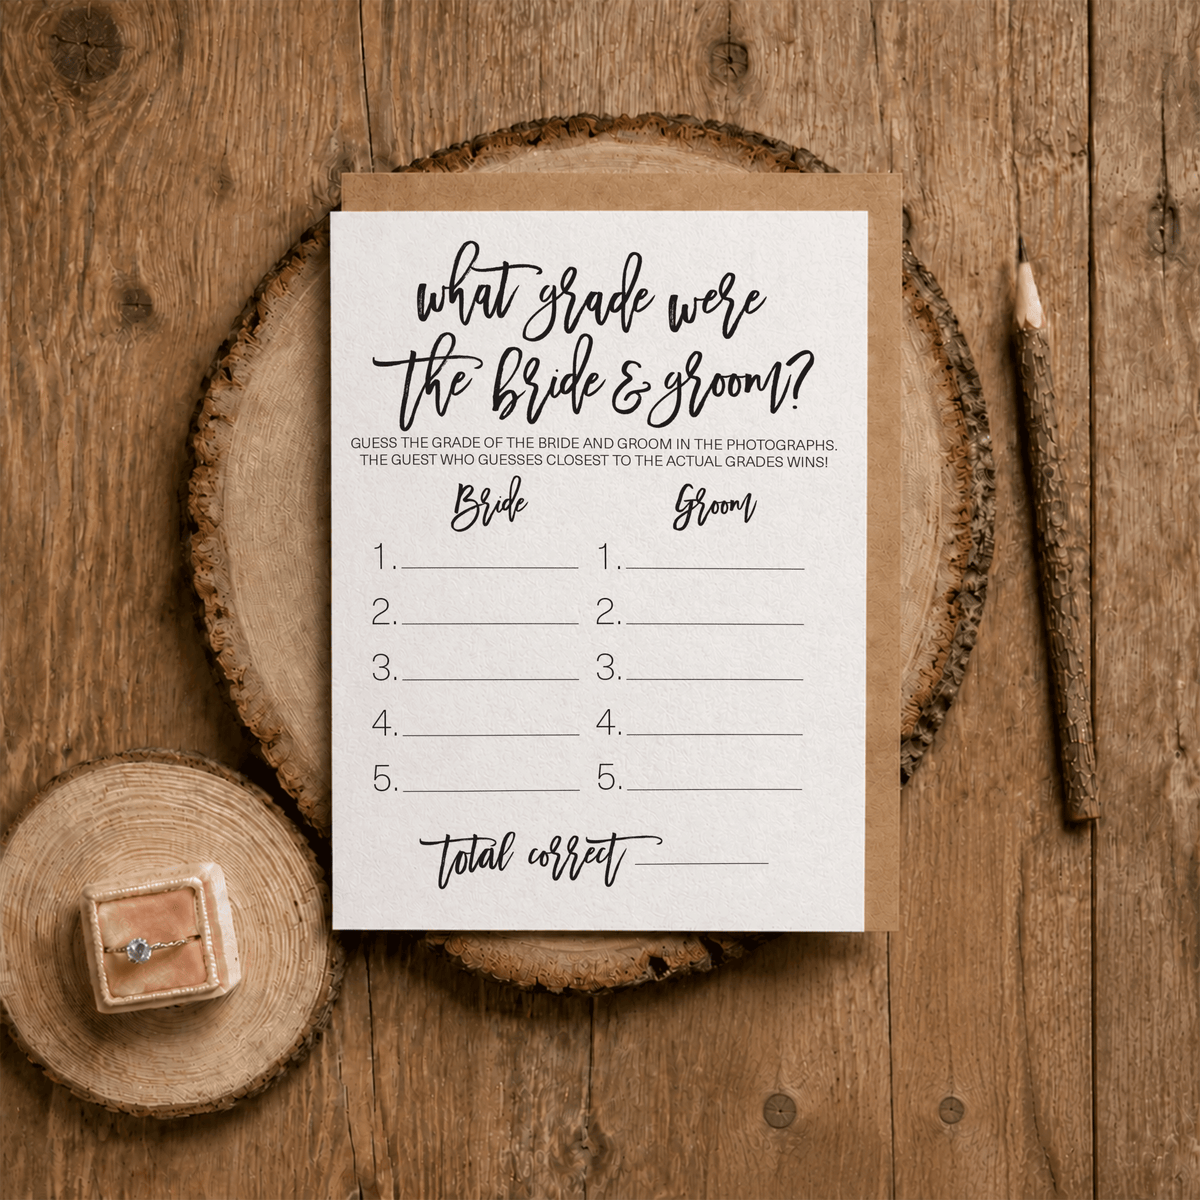 what grade were
the bride & groom?
GUESS THE GRADE OF THE BRIDE AND GROOM IN THE PHOTOGRAPHS.
THE GUEST WHO GUESSES CLOSEST TO THE ACTUAL GRADES WINS!
Bride Groom
1. 1.
2. 2.
3. 3.
4. 4.
5. 5.
total correct